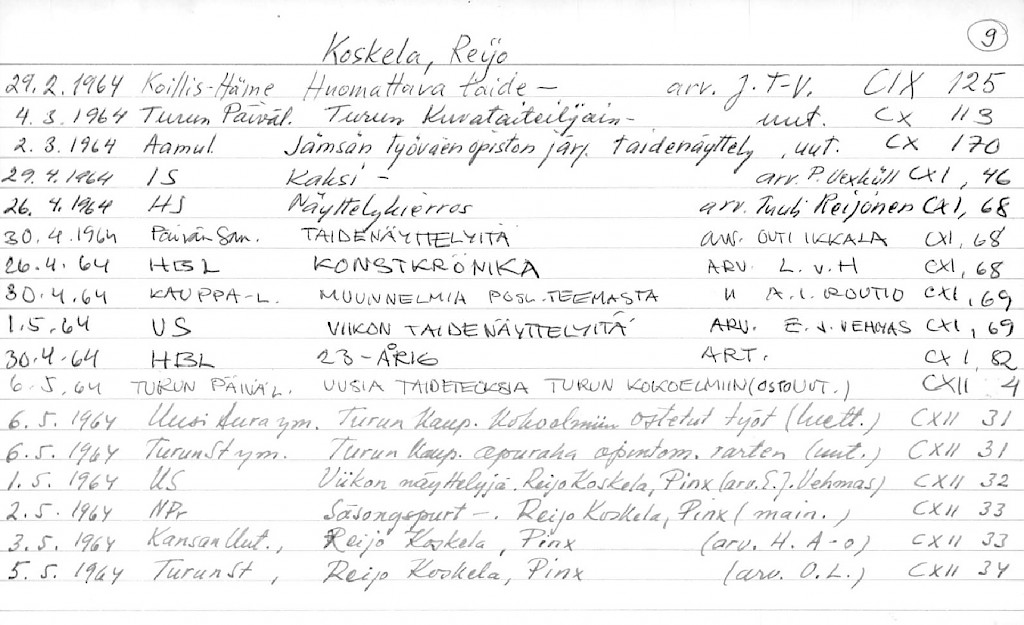 9
Koskela, Reijo
29.2.1964 Koillis-Häme Huomattava taide — arv. J.T-V. CIX 125
4.3.1964 Turun Päiväl. Turun Kuvataiteilijain — uut. CX 113
2.3.1964 Aamul. Jämsän Työväenopiston järj. taidenäyttely, uut. CX 170
29.4.1964 IS Kaksi — arv. P. Uexküll CXI, 46
26.4.1964 HS Näyttelykierros arv. Tuuli Reijonen CXI, 68
30.4.1964 Päivän San. TAIDENÄYTTELYITÄ arv. OUTI IKKALA CXI, 68
26.4.64 HBL KONSTKRÖNIKA ARV. L.v.H CXI, 68
30.4.64 KAUPPA-L. MUUNNELMIA POSL.TEEMASTA " A.I. ROUTIO CXI, 69
1.5.64 US VIIKON TAIDENÄYTTELYITÄ ARV. E.J. VEHMAS CXI, 69
30.4.64 HBL 23-ÅRIG ART. CXI, 82
6.5.64 TURUN PÄIVÄL. UUSIA TAIDETEOKSIA TURUN KOKOELMIIN (OSTOUUT.) CXII 4
6.5.1964 Uusi Aura ym. Turun Kaup. Kokoelmiin ostetut työt (luett.) CXII 31
6.5.1964 TurunSt ym. Turun Kaup. apuraha opintom. varten (uut.) CXII 31
1.5.1964 US Viikon näyttelyjä. Reijo Koskela, Pinx (arv. E.J. Vehmas) CXII 32
2.5.1964 NPr Säsongspurt —. Reijo Koskela, Pinx (main.) CXII 33
3.5.1964 KansanUut., Reijo Koskela, Pinx (arv. H. A-o) CXII 33
5.5.1964 TurunSt, Reijo Koskela, Pinx (arv. O.L.) CXII 34